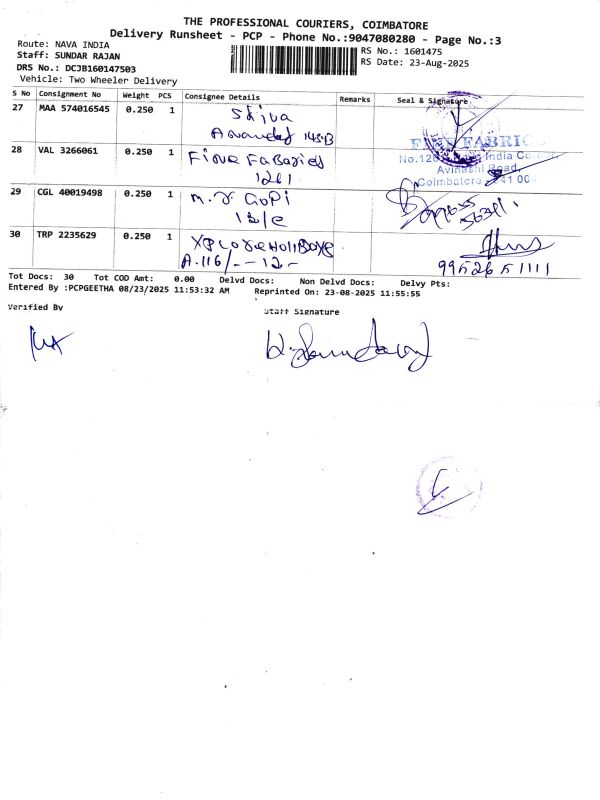 THE PROFESSIONAL COURIERS, COIMBATORE
Delivery Runsheet - PCP - Phone No.:9047080280 - Page No.:3
Route: NAVA INDIA
Staff: SUNDAR RAJAN
DRS No.: DCJB160147503
Vehicle: Two Wheeler Delivery
RS No.: 1601475
RS Date: 23-Aug-2025
S No Consignment No Weight PCS Consignee Details Remarks Seal & Signature
27 MAA 574016545 0.250 1 Shiva
28 VAL 3266061 0.250 1 Fine Fabaries
1261
No.126 India Co
Avinashi Road,
Coimbatore 641 00
29 CGL 40019498 0.250 1 M. G. GoPi
13/e
30 TRP 2235629 0.250 1
A.116/--12-
Tot Docs: 30 Tot COD Amt: 0.00 Delvd Docs: Non Delvd Docs: Delvy Pts:
Entered By :PCPGEETHA 08/23/2025 11:53:32 AM Reprinted On: 23-08-2025 11:55:55
Verified By
Staff Signature